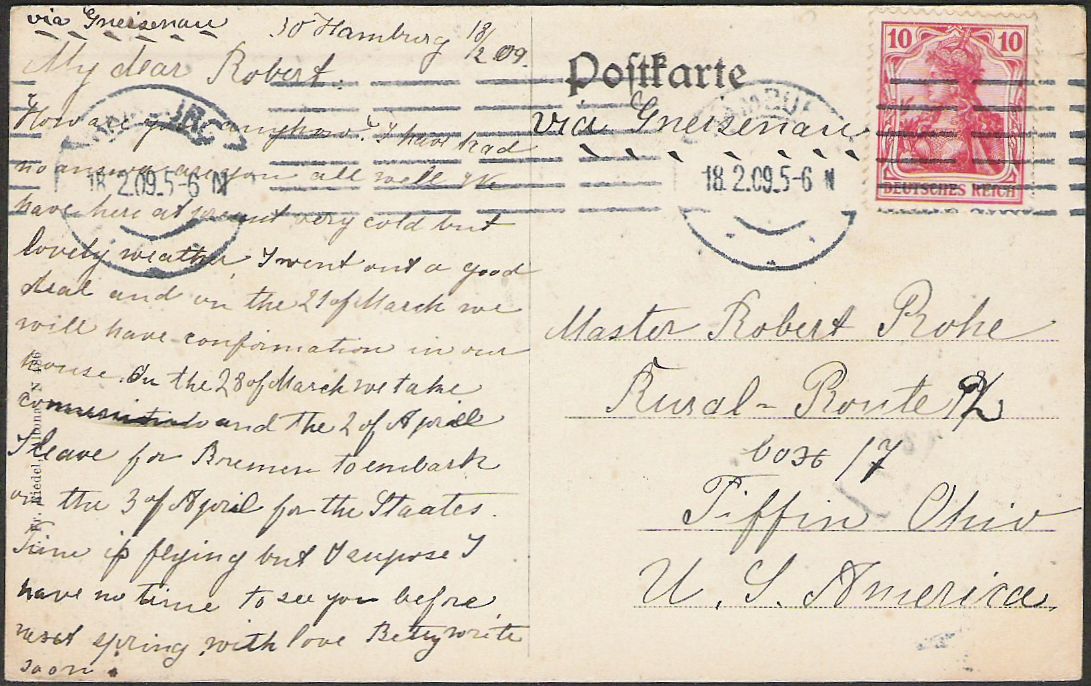 via Gneisenau
30 Hamburg 18/2 09.
My dear Robert.
How are you anyhow? I have had
no answer are you all well We
have here at present very cold but
lovely weather. I went out a good
deal and on the 21 of March we
will have conformation in our
house. On the 28 of March we take
and the 2 of Aprill
I leave for Bremen to embark
on the 3 of April for the Staates.
Time is flying but I supose I
have no time to see you before
next spring with love Betty write
soon.
Postkarte
via Gneisenau
10 10
DEUTSCHES REICH
HAMBURG
18.2.09.5-6 N
HAMBURG
18.2.09.5-6 N
Master Robert Rohe
Rural-Route
box 17
Tiffin Ohio
U. S. America.